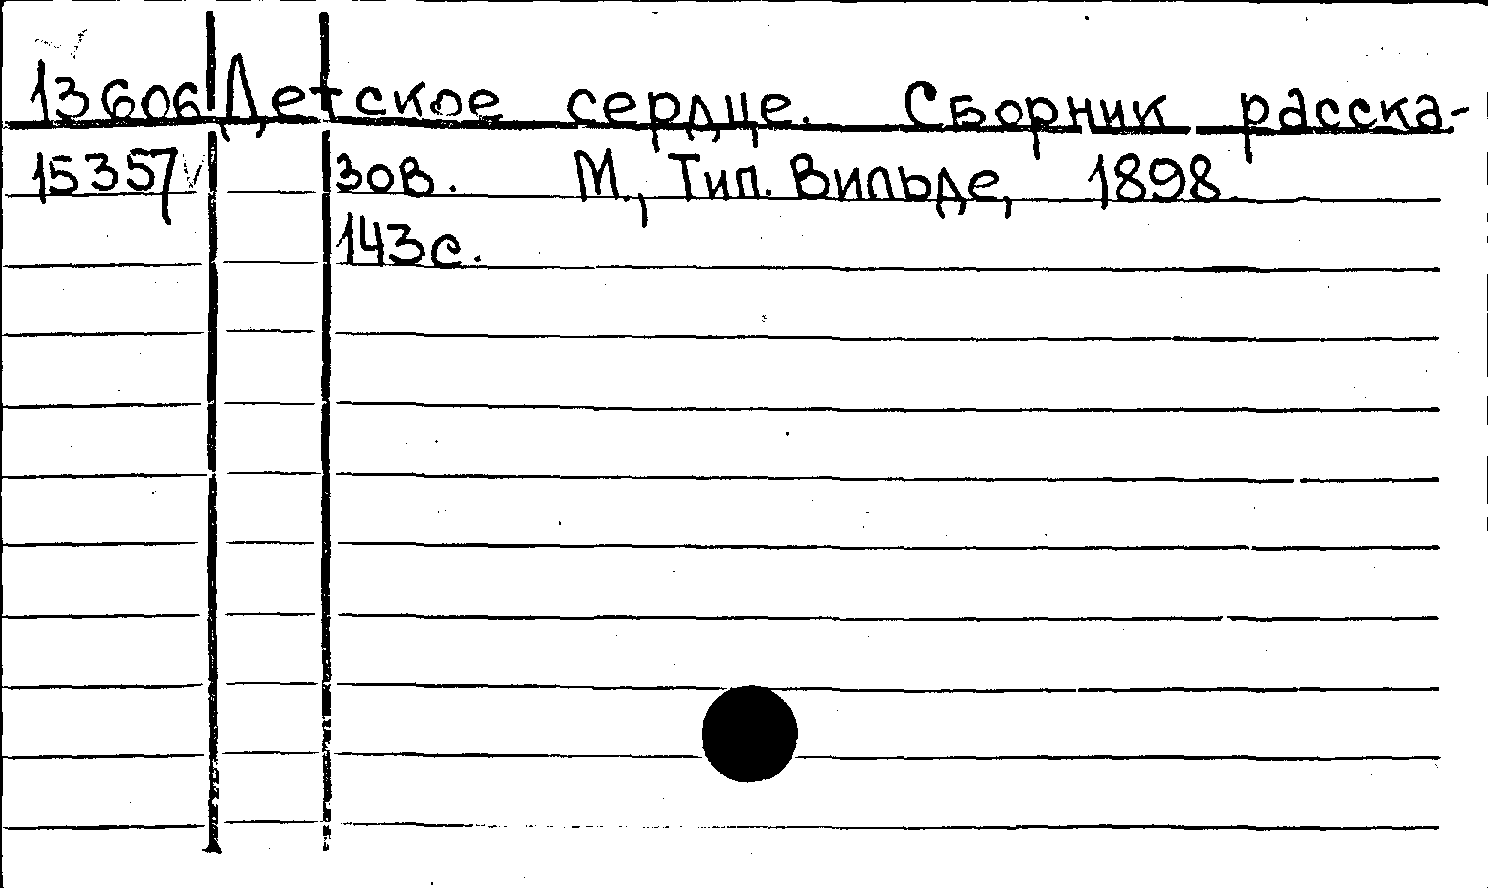 13606 Детское сердце. Сборник расска-
15357 зов. М., Тип. Вильде, 1898
143с.